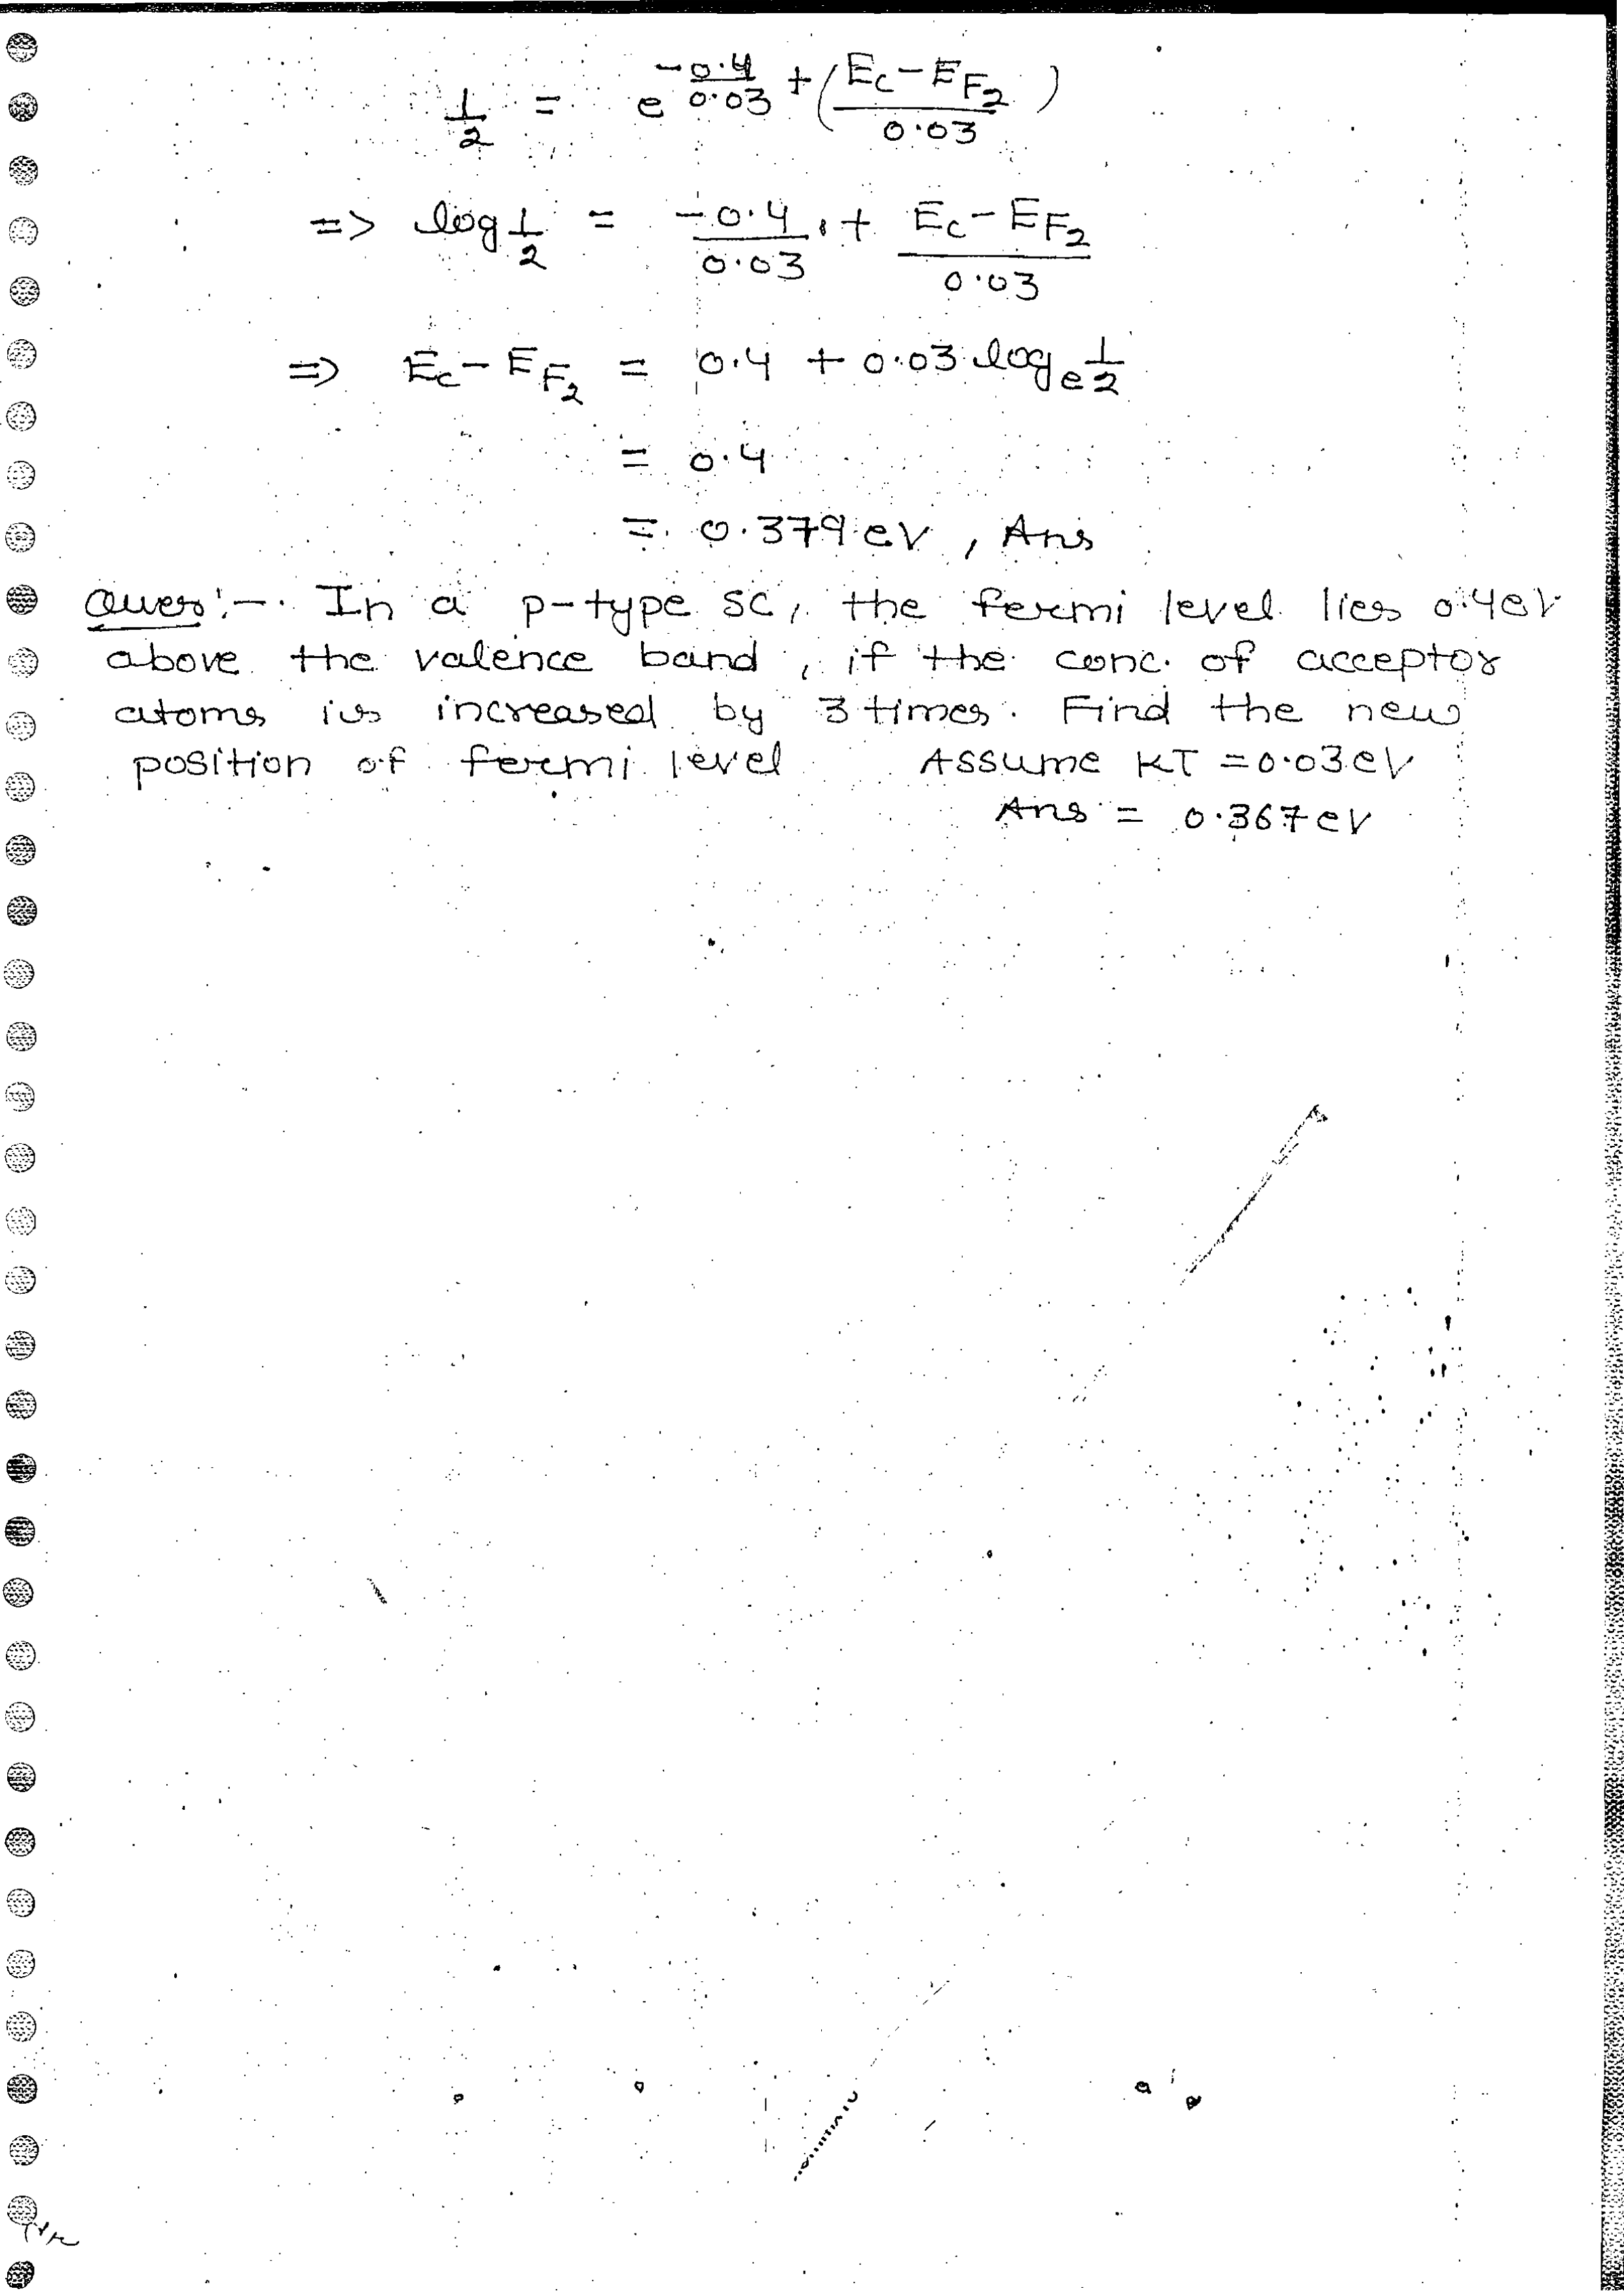 1/2 = e^(-0.4/0.03 + (Ec-EF2/0.03))
=> log 1/2 = -0.4/0.03 + Ec-EF2/0.03
=> Ec-EF2 = 0.4 + 0.03 loge 1/2
= 0.4
= 0.379 eV, Ans
Ques:-. In a p-type SC, the fermi level lies 0.4eV
above the valence band, if the conc. of acceptor
atoms is increased by 3 times. Find the new
position of fermi level Assume KT = 0.03eV
Ans = 0.367eV